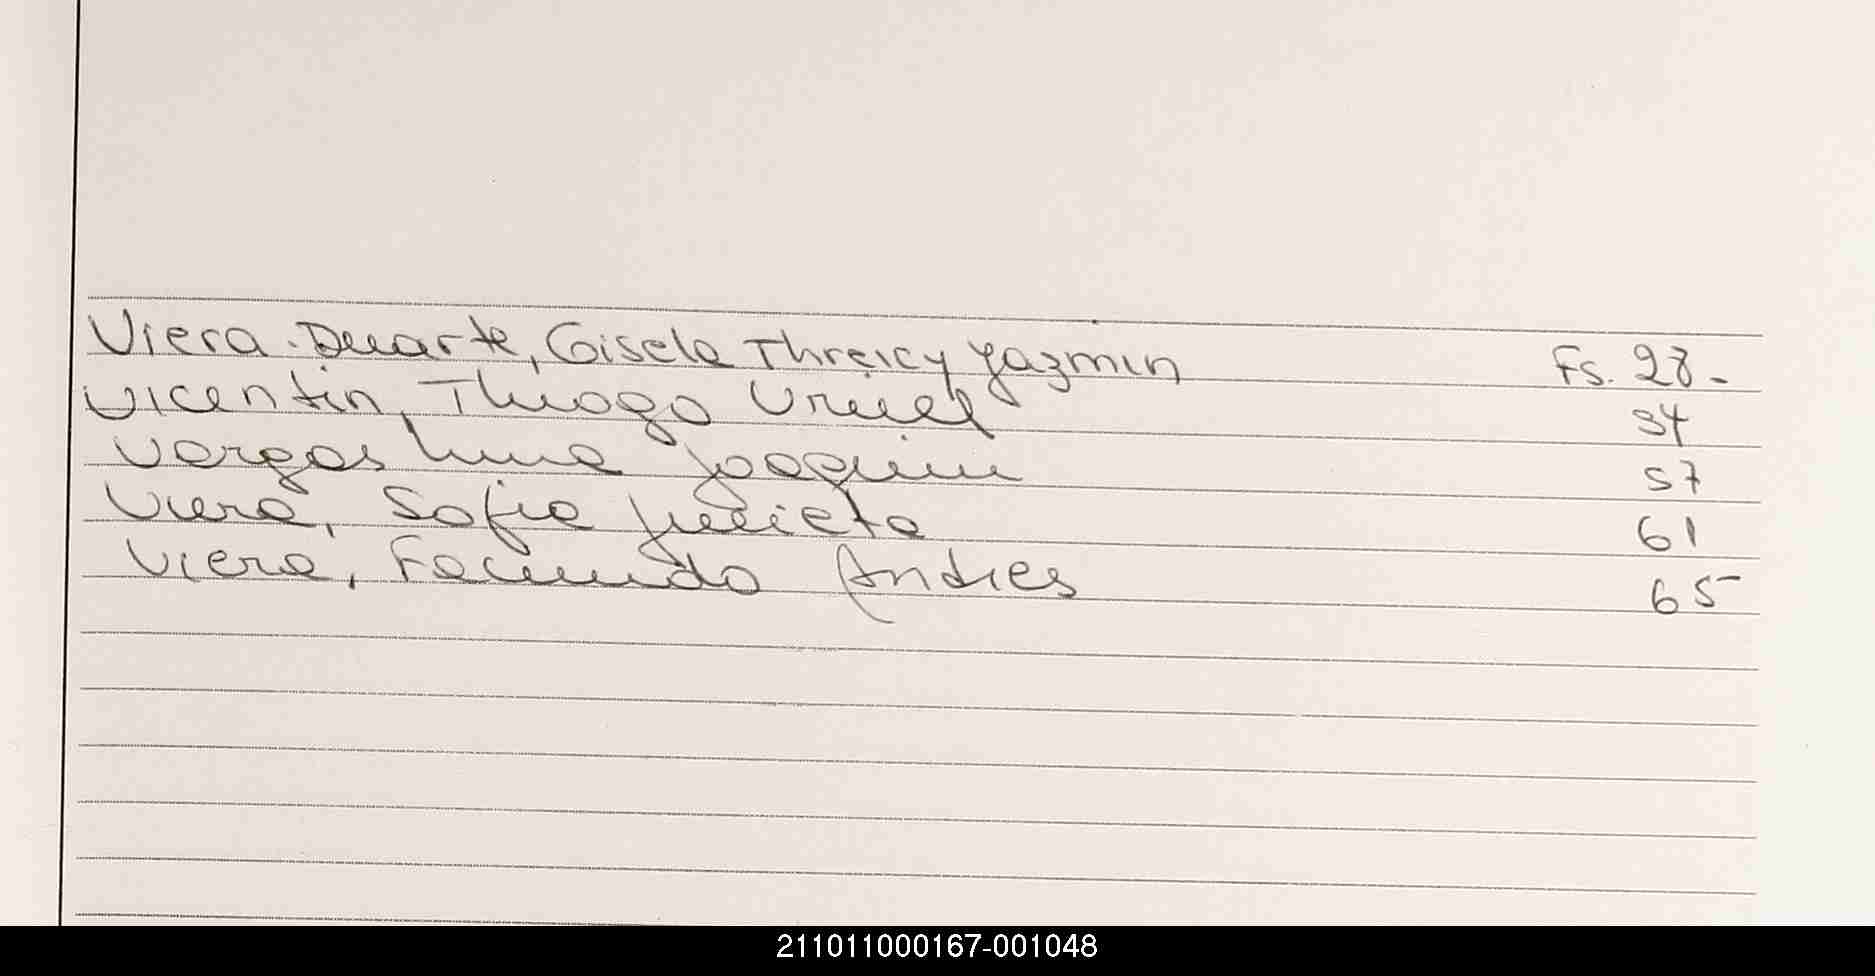 Viera Duarte, Gisela Threicy Yazmin Fs. 28.
Vicentin, Thiago Uriel 54
Vargas Luna Joaquin 57
Viera, Sofia Julieta 61
Viera, Facundo Andres 65
211011000167-001048